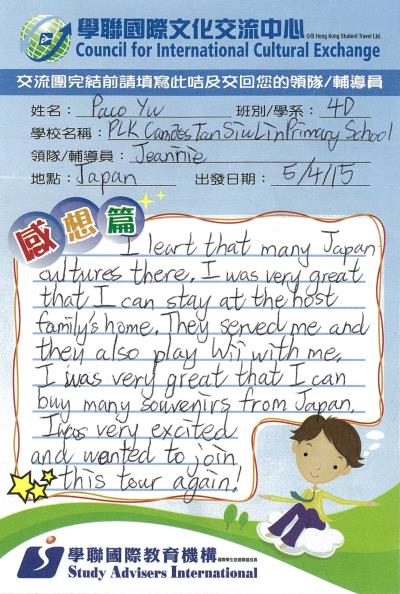 學聯國際文化交流中心
O/B Hong Kong Student Travel Ltd.
Council for International Cultural Exchange
交流團完結前請填寫此咭及交回您的領隊/輔導員
姓名: Paco Yu 班別/學系: 4D
學校名稱: PLK Camões Tan Siu Lin Primary School
領隊/輔導員: Jeannie
地點: Japan 出發日期: 5/4/15
感想篇
I leart that many Japan
cultures there. I was very great
that I can stay at the host
family's home. They served me and
they also play Wii with me.
I was very great that I can
buy many souvenirs from Japan.
I was very excited
and wanted to join
this tour again!
學聯國際教育機構
Study Advisers International